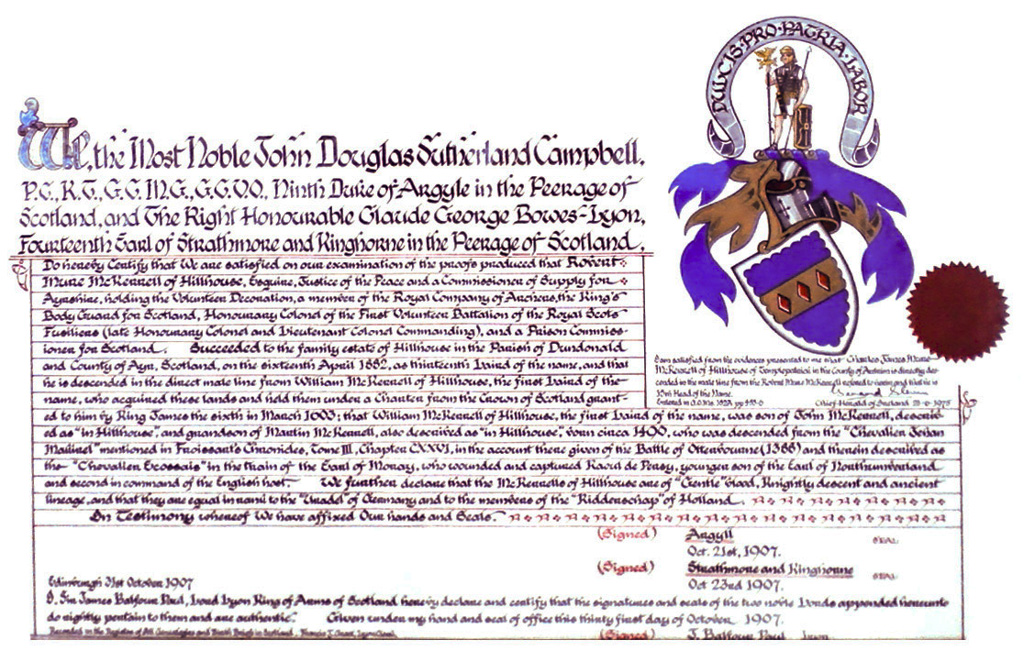 DULCIS·PRO·PATRIA·LABOR
We, the Most Noble John Douglas Sutherland Campbell,
P.C., K.T., G.C.M.G., G.C.V.O., Ninth Duke of Argyle in the Peerage of
Scotland, and The Right Honourable Claude George Bowes-Lyon,
Fourteenth Earl of Strathmore and Kinghorne in the Peerage of Scotland,
Do hereby Certify that We are satisfied on our examination of the proofs produced that Robert
Mure McKerrell of Hillhouse, Esquire, Justice of the Peace and a Commissioner of Supply for
Ayrshire, holding the Volunteer Decoration, a member of the Royal Company of Archers, the King's
Body Guard for Scotland, Honourary Colonel of the First Volunteer Battalion of the Royal Scots
Fusiliers (late Honourary Colonel and Lieutenant Colonel Commanding), and a Prison Commiss-
ioner for Scotland. Succeeded to the family estate of Hillhouse in the Parish of Dundonald
and County of Ayr, Scotland, on the sixteenth April 1882, as thirteenth Laird of the name, and that
he is descended in the direct male line from William McKerrell of Hillhouse, the first Laird of the
name, who acquired these lands and held them under a Charter from the Crown of Scotland grant-
ed to him by King James the sixth in March 1603; that William McKerrell of Hillhouse, the first Laird of the name, was son of John McKerrell, describ-
ed as "in Hillhouse", and grandson of Martin McKerrell, also described as "in Hillhouse", born circa 1490, who was descended from the "Chevalier Jehan
Mallirel" mentioned in Froissart's Chronicles, Tome III, Chapter CXXVI, in the account there given of the Battle of Otterbourne (1388) and therein described as
the "Chevalier Ecossais" in the train of the Earl of Moray, who wounded and captured Raoul de Persy, younger son of the Earl of Northumberland
and second in command of the English host. We further declare that the McKerrells of Hillhouse are of "Gentle" blood, Knightly descent and ancient
lineage, and that they are equal in name to the "Uradel" of Germany and to the members of the "Ridderschap" of Holland.
In Testimony whereof We have affixed Our hands and Seals.
I am satisfied from the evidences presented to me that Charles James Mure
McKerrell of Hillhouse of Templepatrick in the County of Antrim is directly des-
cended in the male line from the Robert Mure McKerrell referred to herein and that he is
15th Head of the Name.
Entered in
Chief Herald of Ireland
(Signed) Argyll SEAL
Oct. 21st, 1907.
(Signed) Strathmore and Kinghorne SEAL
Oct 23rd 1907.
Edinburgh 31st October 1907
I, Sir James Balfour Paul, Lord Lyon King of Arms of Scotland hereby declare and certify that the signatures and seals of the two noble Lords appended hereunto
do rightly pertain to them and are authentic. Given under my hand and seal of office this thirty first day of October 1907.
Recorded in the Register of All Genealogies and Birth Brieves in Scotland. Francis J. Grant, Lyon Clerk.
(Signed) J. Balfour Paul Lyon